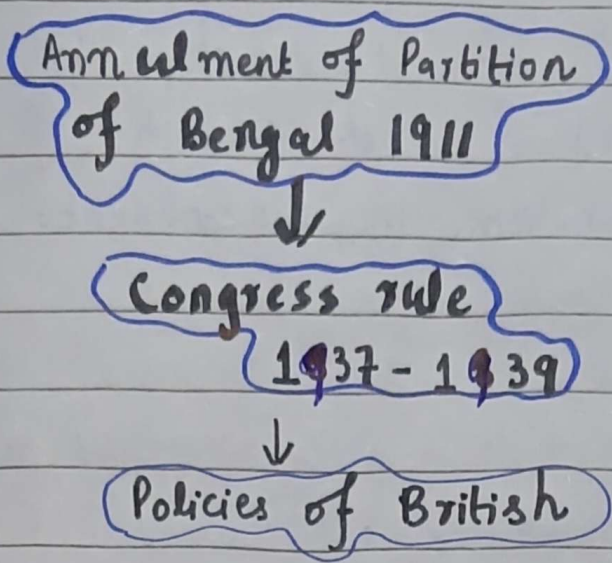 Annulment of Partition
of Bengal 1911
Congress rule
1937 - 1939
Policies of British